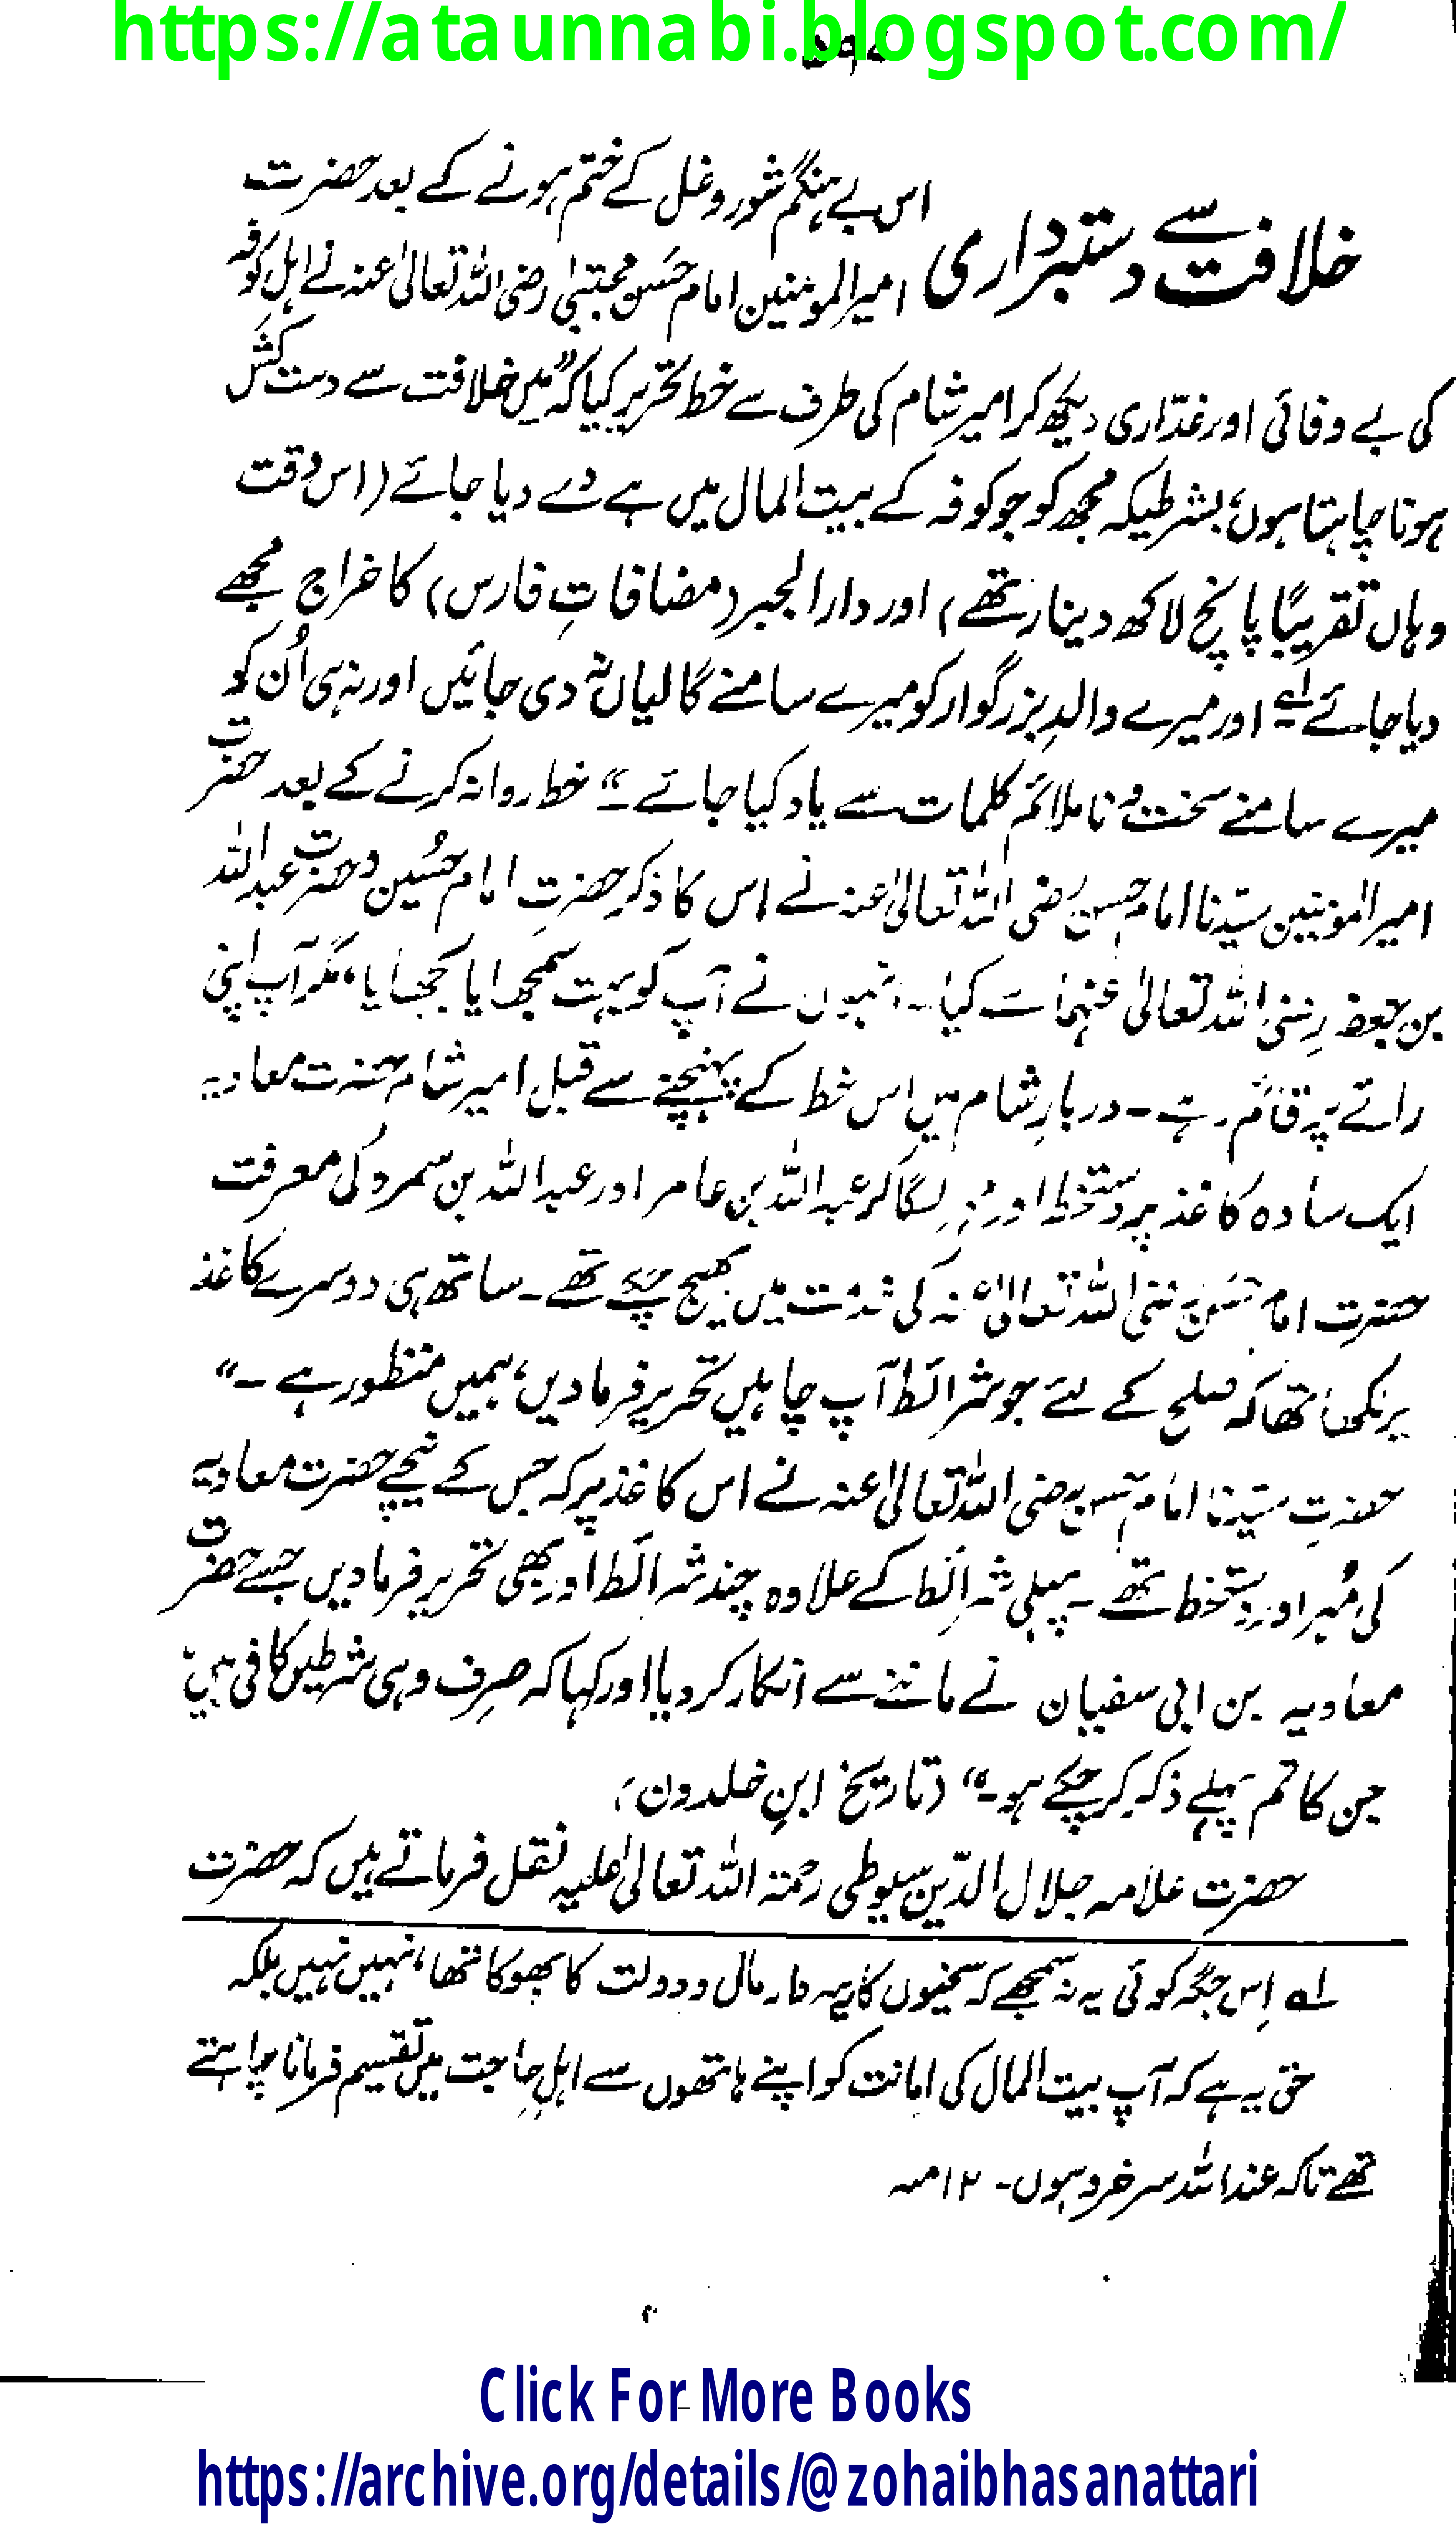 https://ataunnabi.blogspot.com/
خلافت سے دستبرداری
اس بے ہنگم شور و غل کے ختم ہونے کے بعد حضرت
امیرالمومنین امام حسَن مجتبیٰ رضی اللہ تعالیٰ عنہ نے اہلِ کوفہ
کی بے وفائی اور غدّاری دیکھ کر امیرِ شام کی طرف سے خط تحریر کیا کہ ”میں خلافت سے دست کش
ہونا چاہتا ہوں، بشرطیکہ مجھ کو جو کوفہ کے بیت المال میں ہے دے دیا جائے (اس وقت
وہاں تقریبًا پانچ لاکھ دینار تھے) اور دارالجبر (مضافاتِ فارس) کا خراج مجھے
دیا جائے لہ اور میرے والدِ بزرگوار کو میرے سامنے گالیاں نہ دی جائیں اور نہ ہی اُن کو
میرے سامنے سخت و ناملائم کلمات سے یاد کیا جائے۔“ خط روانہ کرنے کے بعد حضرت
امیرالمؤمنین سیّدنا امام حسن رضی اللہ تعالیٰ عنہ نے اس کا ذکر حضرتِ امام حسُین و حضرت عبداللہ
بن جعفر رضی اللہ تعالیٰ عنہما سے کیا۔ انہوں نے آپ کو بہت سمجھایا بجھایا، مگر آپ اپنی
رائے پر قائم رہے۔ دربارِ شام میں اس خط کے پہنچنے سے قبل امیرِ شام حضرت معاویہ
ایک سادہ کاغذ پر دستخط اور مہر لگا کر عبداللہ بن عامر اور عبداللہ بن سمرہ کی معرفت
حضرتِ امام حسَن رضی اللہ تعالیٰ عنہ کی خدمت میں بھیج چکے تھے۔ ساتھ ہی دوسرے کاغذ
پر لکھا تھا کہ صلح کے لئے جو شرائط آپ چاہیں تحریر فرما دیں، ہمیں منظور ہے۔“
حضرتِ سیّدنا امام حسن رضی اللہ تعالیٰ عنہ نے اس کاغذ پر کہ جس کے نیچے حضرت معاویہ
کی مُہر اور دستخط تھے۔ پہلی شرائط کے علاوہ چند شرائط اور بھی تحریر فرما دیں جسے حضرت
معاویہ بن ابی سفیان نے ماننے سے انکار کر دیا اور کہا کہ صِرف وہی شرطیں کافی ہیں
جن کا تم پہلے ذکر کر چکے ہو۔“ (تاریخ ابنِ خلدون)
حضرت علامہ جلال الدّین سیوطی رحمۃ اللہ تعالیٰ علیہ نقل فرماتے ہیں کہ حضرت
لہ اِس جگہ کوئی یہ نہ سمجھے کہ سخیوں کا مال و دولت کا بھوکا تھا، نہیں نہیں بلکہ
حق یہ ہے کہ آپ بیت المال کی امانت کو اپنے ہاتھوں سے اہلِ حاجت میں تقسیم فرمانا چاہتے
تھے تاکہ عنداللہ سرخرو ہوں۔ ۱۲ منہ
Click For More Books
https://archive.org/details/@zohaibhasanattari